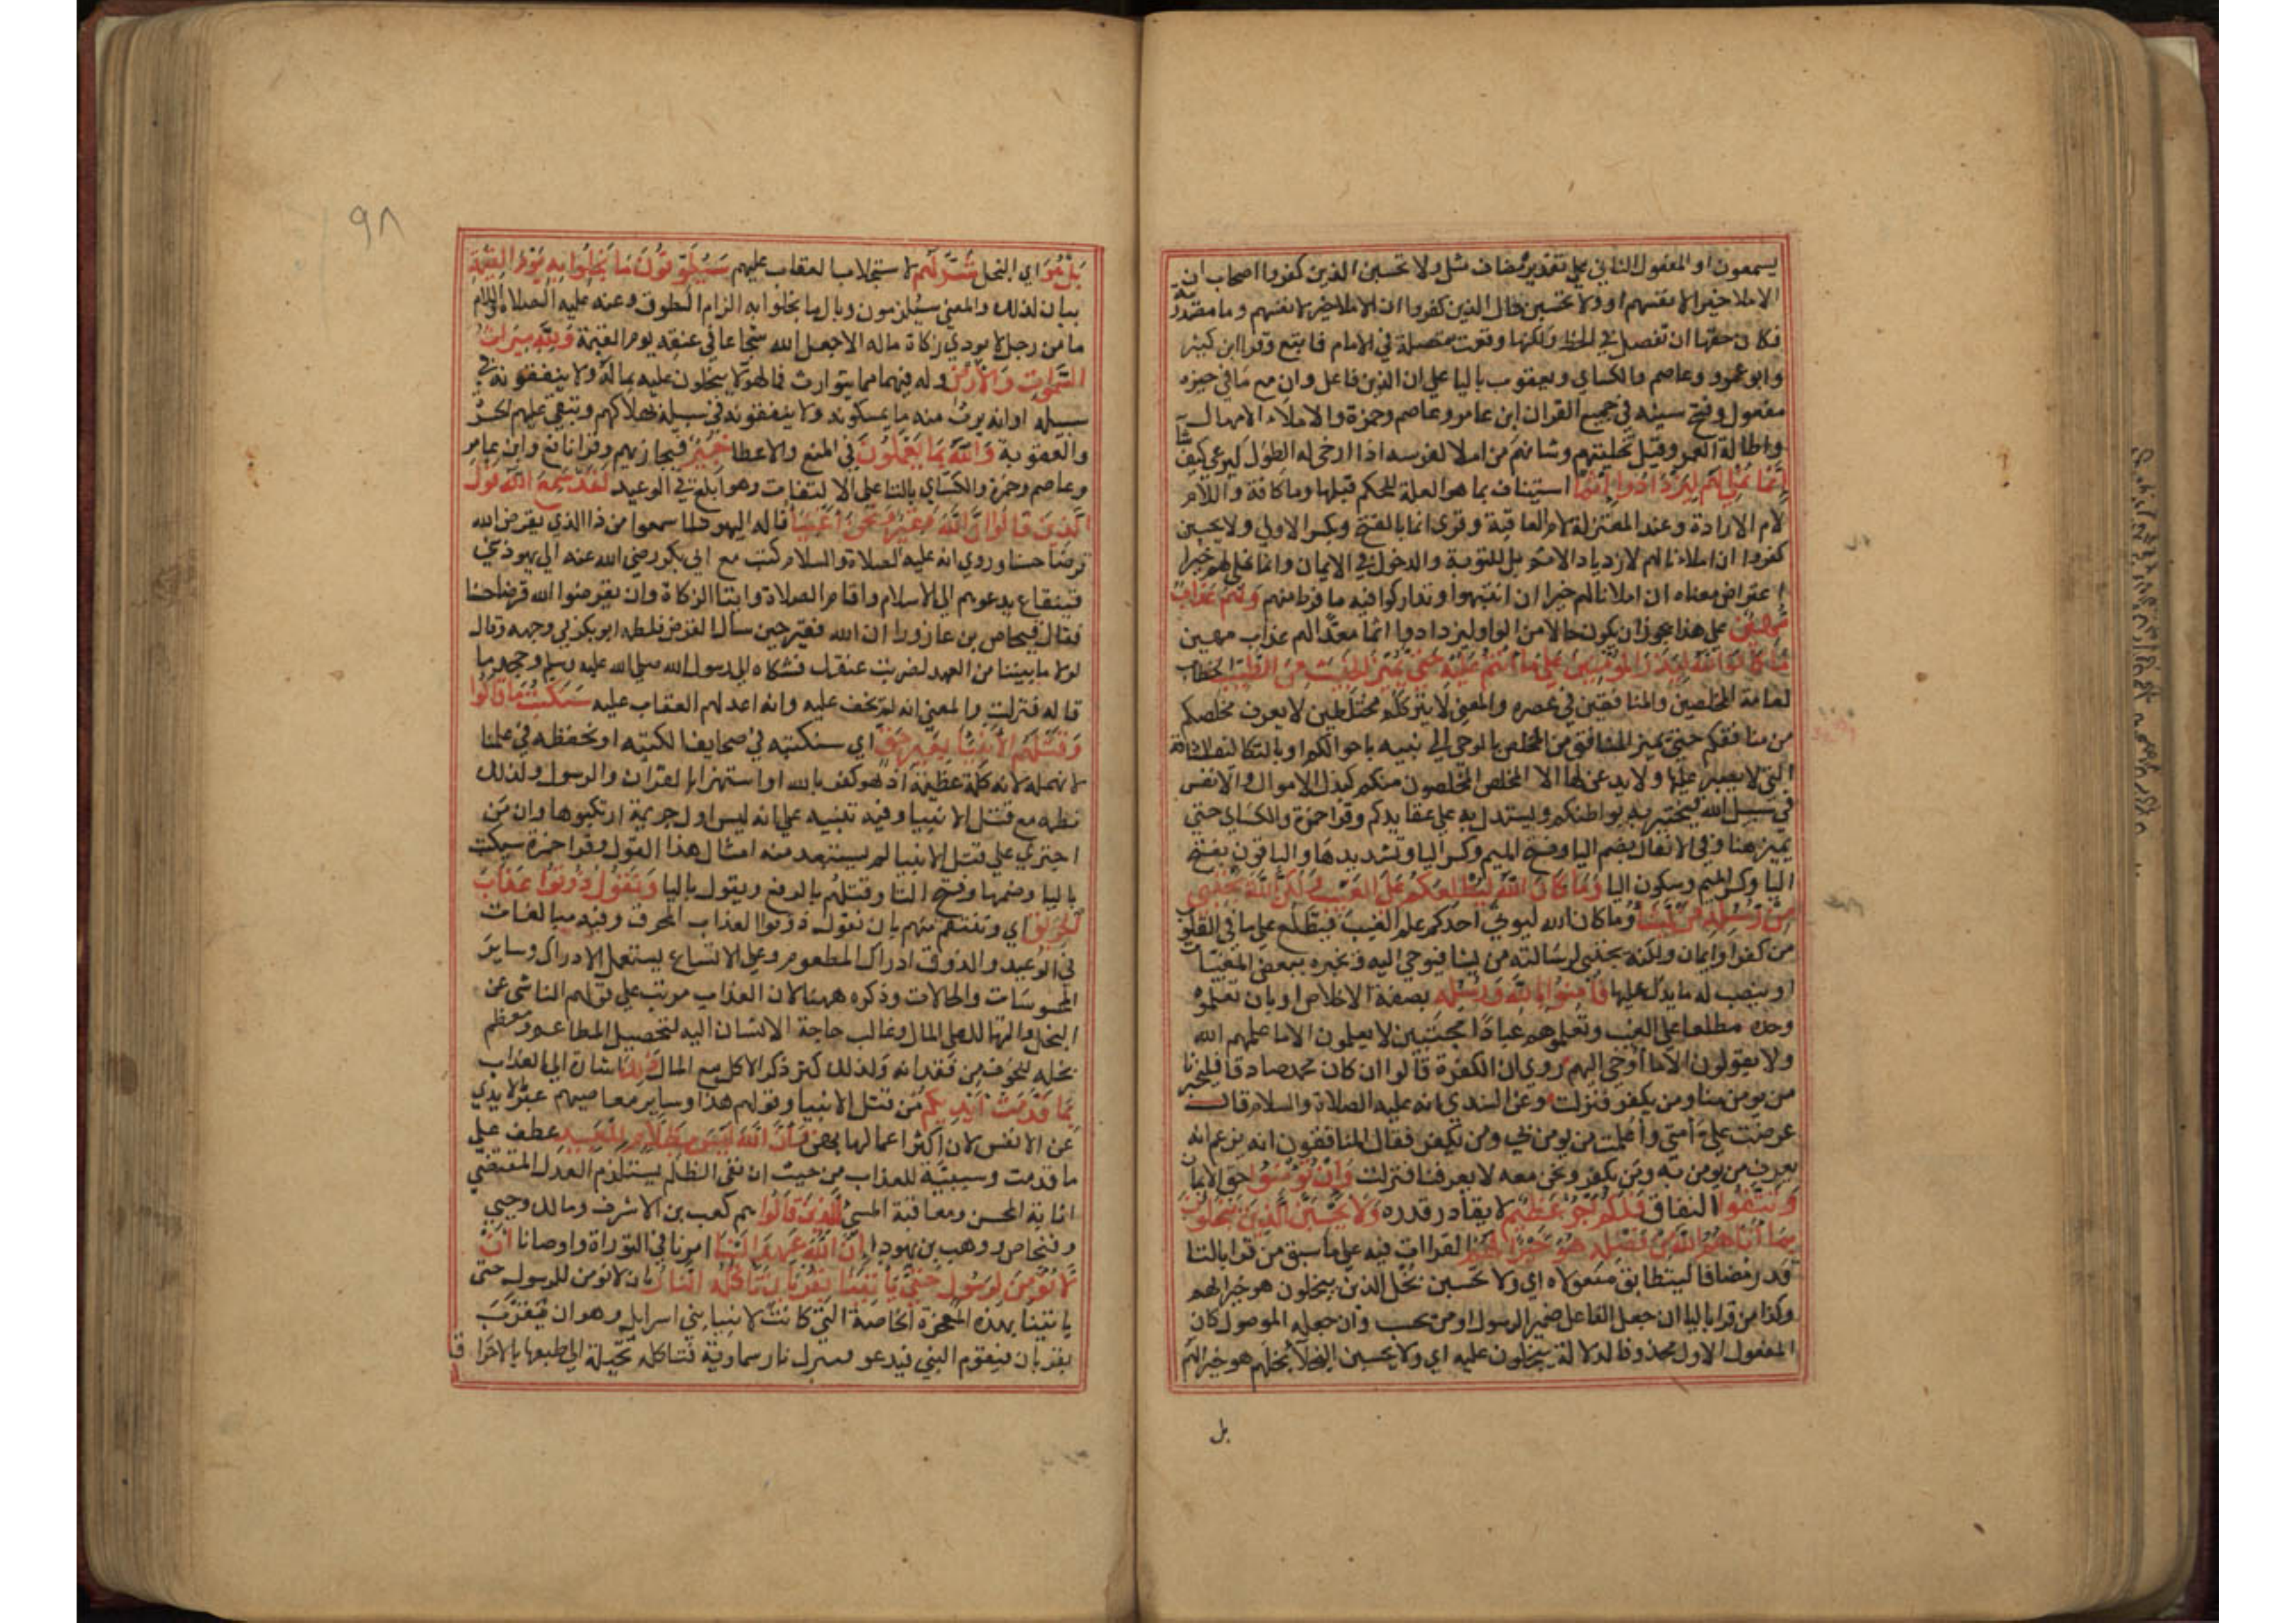 يسمعون او المفعول الثاني علي تقدير مضاف مثل ولا تحسبن الذين كفروا اصحاب ان
الاملا خير لانفسهم او ولا تحسبن حال الذين كفروا ان الاملا خير لانفسهم وما مصدرية
فكان حقها ان تفصل في الخط ولكنها وقعت متصلة في الامام فاتبع وقرا ابن كثير
وابو عمرو وعاصم والكساي ويعقوب باليا علي ان الذين فاعل وان مع ما في حيزه
مفعول وفتح سينه في جميع القران ابن عامر وعاصم وحمزة والاملاء الامهال
واطالة العمر وقيل تخليتهم وشانهم من املا لفرسه اذا ارخي له الطول ليرعي كيف شا
إنما نملي لهم ليزدادوا إثما استيناف بما هو العلة للحكم قبلها وما كافة واللام
لام الارادة وعند المعتزلة لام العاقبة وقري انما بالفتح وبكسر الاولي ولا يحسبن
كفروا ان املاءنا لهم لازدياد الاثم بل للتوبة والدخول في الايمان وانما نملي لهم خيرا
اعتراض معناه ان املانا لهم خيرا ان انتبهوا وتداركوا فيه ما فرط منهم ولهم عذاب
مهين علي هذا يجوز ان يكون حالا من الواو ليزدادوا اثما معدا لهم عذاب مهين
ما كان الله ليذر المؤمنين علي ما أنتم عليه حتي يميز الخبيث من الطيب الخطاب
لعامة المخلصين والمنافقين في عصره والمعني لا يترككم مختلطين لا يعرف مخلصكم
من منافقكم حتي يميز المنافق من المخلص بالوحي الي نبيه باحوالكم او بالتكاليف الشاقة
التي لا يصبر عليها ولا يذعن لها الا الخلص المخلصون منكم كبذل الاموال والانفس
في سبيل الله ليختبر به بواطنكم ويستدل به علي عقايدكم وقرا حمزة والكساي حتي
يميز هنا وفي الانفال بضم اليا وفتح الميم وكسر اليا وتشديدها والباقون بفتح
اليا وكسر الميم وسكون اليا وما كان الله ليطلعكم علي الغيب ولكن الله يجتبي
من رسله من يشا وما كان الله ليوتي احدكم علم الغيب فيطلع علي ما في القلوب
من كفر وايمان ولكنه يجتبي لرسالته من يشا فيوحي اليه ويخبره ببعض المغيبات
او ينصب له ما يدل عليها فآمنوا بالله ورسله بصفة الاخلاص او بان تعلموه
وحده مطلعا علي الغيب وتعلموهم عبادا مجتبين لا يعلمون الا ما علمهم الله
ولا يقولون الا ما أوحي اليهم روي ان الكفرة قالوا ان كان محمد صادقا فليخبرنا
من يومن منا ومن يكفر فنزلت وعن السدي انه عليه الصلاة والسلام قال
عرضت علي أمتي وأعلمت من يومن بي ومن يكفر فقال المنافقون انه يزعم انه
يعرف من يومن به ومن يكفر ونحن معه لا يعرفنا فنزلت وان تومنوا حق الايمان
وتتقوا النفاق فلكم أجر عظيم لا يقادر قدره ولا يحسبن الذين يبخلون
بما آتاهم الله من فضله هو خيرا لهم القراات فيه علي ما سبق من قرا بالتا
قدر مضافا ليتطابق مفعولاه اي ولا تحسبن بخل الذين يبخلون هو خيرا لهم
وكذا من قرا باليا ان جعل الفاعل ضمير الرسول او من يحسب وان جعله الموصول كان
المفعول الاول محذوفا لدلالة يبخلون عليه اي ولا يحسبن البخلا بخلهم هو خيرا لهم
بل
٩٨
بل هو اي البخل شر لهم لاستجلاب العقاب عليهم سيطوقون ما بخلوا به يوم القيمة
بيان لذلك والمعني سيلزمون وبال ما بخلوا به الزام الطوق وعنه عليه الصلاة والسلام
ما من رجل لا يودي زكاة ماله الا جعل الله شجاعا في عنقه يوم القيمة ولله ميراث
السموات والأرض وله فيهما مما يتوارث فما لهولا يبخلون عليه بماله ولا ينفقونه في
سبيله او انه يرث منه ما يمسكونه ولا ينفقونه في سبيله بهلاكهم وتبقي عليهم الحسرة
والعقوبة والله بما يعملون في المنع والاعطا خبير فيجازيهم وقرا نافع وابن عامر
وعاصم وحمزة والكساي بالتا علي الالتفات وهو ابلغ في الوعيد لقد سمع الله قول
الذين قالوا إن الله فقير ونحن أغنيا قاله اليهود لما سمعوا من ذا الذي يقرض الله
قرضا حسنا وروي انه عليه الصلاة والسلام كتب مع ابي بكر رضي الله عنه الي يهود بني
قينقاع يدعوهم الي الاسلام واقام الصلاة وايتا الزكاة وان يقرضوا الله قرضا حسنا
فقال فنحاص بن عازورا ان الله فقير حين سال القرض فلطمه ابو بكر في وجهه وقال
لولا ما بيننا من العهد لضربت عنقك فشكاه الي رسول الله صلي الله عليه وسلم وجحد ما
قاله فنزلت والمعني انه لم يخف عليه وانه اعد لهم العقاب عليه سنكتب ما قالوا
وقتلهم الأنبيا بغير حق اي سنكتبه في صحايف الكتبه او نحفظه في علمنا
لا نهمله لانه كلمة عظيمة اذ هو كفر بالله او استهزا بالقران والرسول ولذلك
نظمه مع قتل الانبيا وفيه تنبيه علي انه ليس اول جريمة ارتكبوها وان من
اجتري علي قتل الانبيا لم يستبعد منه امثال هذا القول وقرا حمزة سيكتب
باليا وضمها وفتح التا وقتلهم بالرفع ويقول باليا ونقول ذوقوا عذاب
الحريق اي وننتقم منهم بان نقول ذوقوا العذاب المحرق وفيه مبالغات
في الوعيد والذوق ادراك المطعوم وعلي الاتساع يستعمل لادراك وساير
المحسوسات والحالات وذكره ههنا لان العذاب مرتب علي قولهم الناشي عن
البخل والتهالك علي المال وغالب حاجة الانسان اليه لتحصيل المطاعم ومعظم
بخله للخوف من فقدانه ولذلك كثر ذكر الاكل مع المال ذلك اشارة الي العذاب
بما قدمت أيديكم من قتل الانبيا وقولهم هذا وساير معاصيهم عبر بالايدي
عن الانفس لان اكثر اعمالها بهن وأن الله ليس بظلام للعبيد عطف علي
ما قدمت وسببية للعذاب من حيث ان نفي الظلم يستلزم العدل المقتضي
اثابة المحسن ومعاقبة المسي الذين قالوا هم كعب بن الاشرف ومالك وحيي
وفنحاص ووهب بن يهودا إن الله عهد إلينا امرنا في التوراة واوصانا أن
لا نؤمن لرسول حتي يأتينا بقربان تأكله النار بان لا نومن لرسول حتي
ياتينا بهذه المعجزة الخاصة التي كانت لانبيا بني اسرايل وهو ان يقرب
بقربان فيقوم النبي فيدعو فتنزل نار سماوية فتاكله تحيله الي طبعها بالاحراق